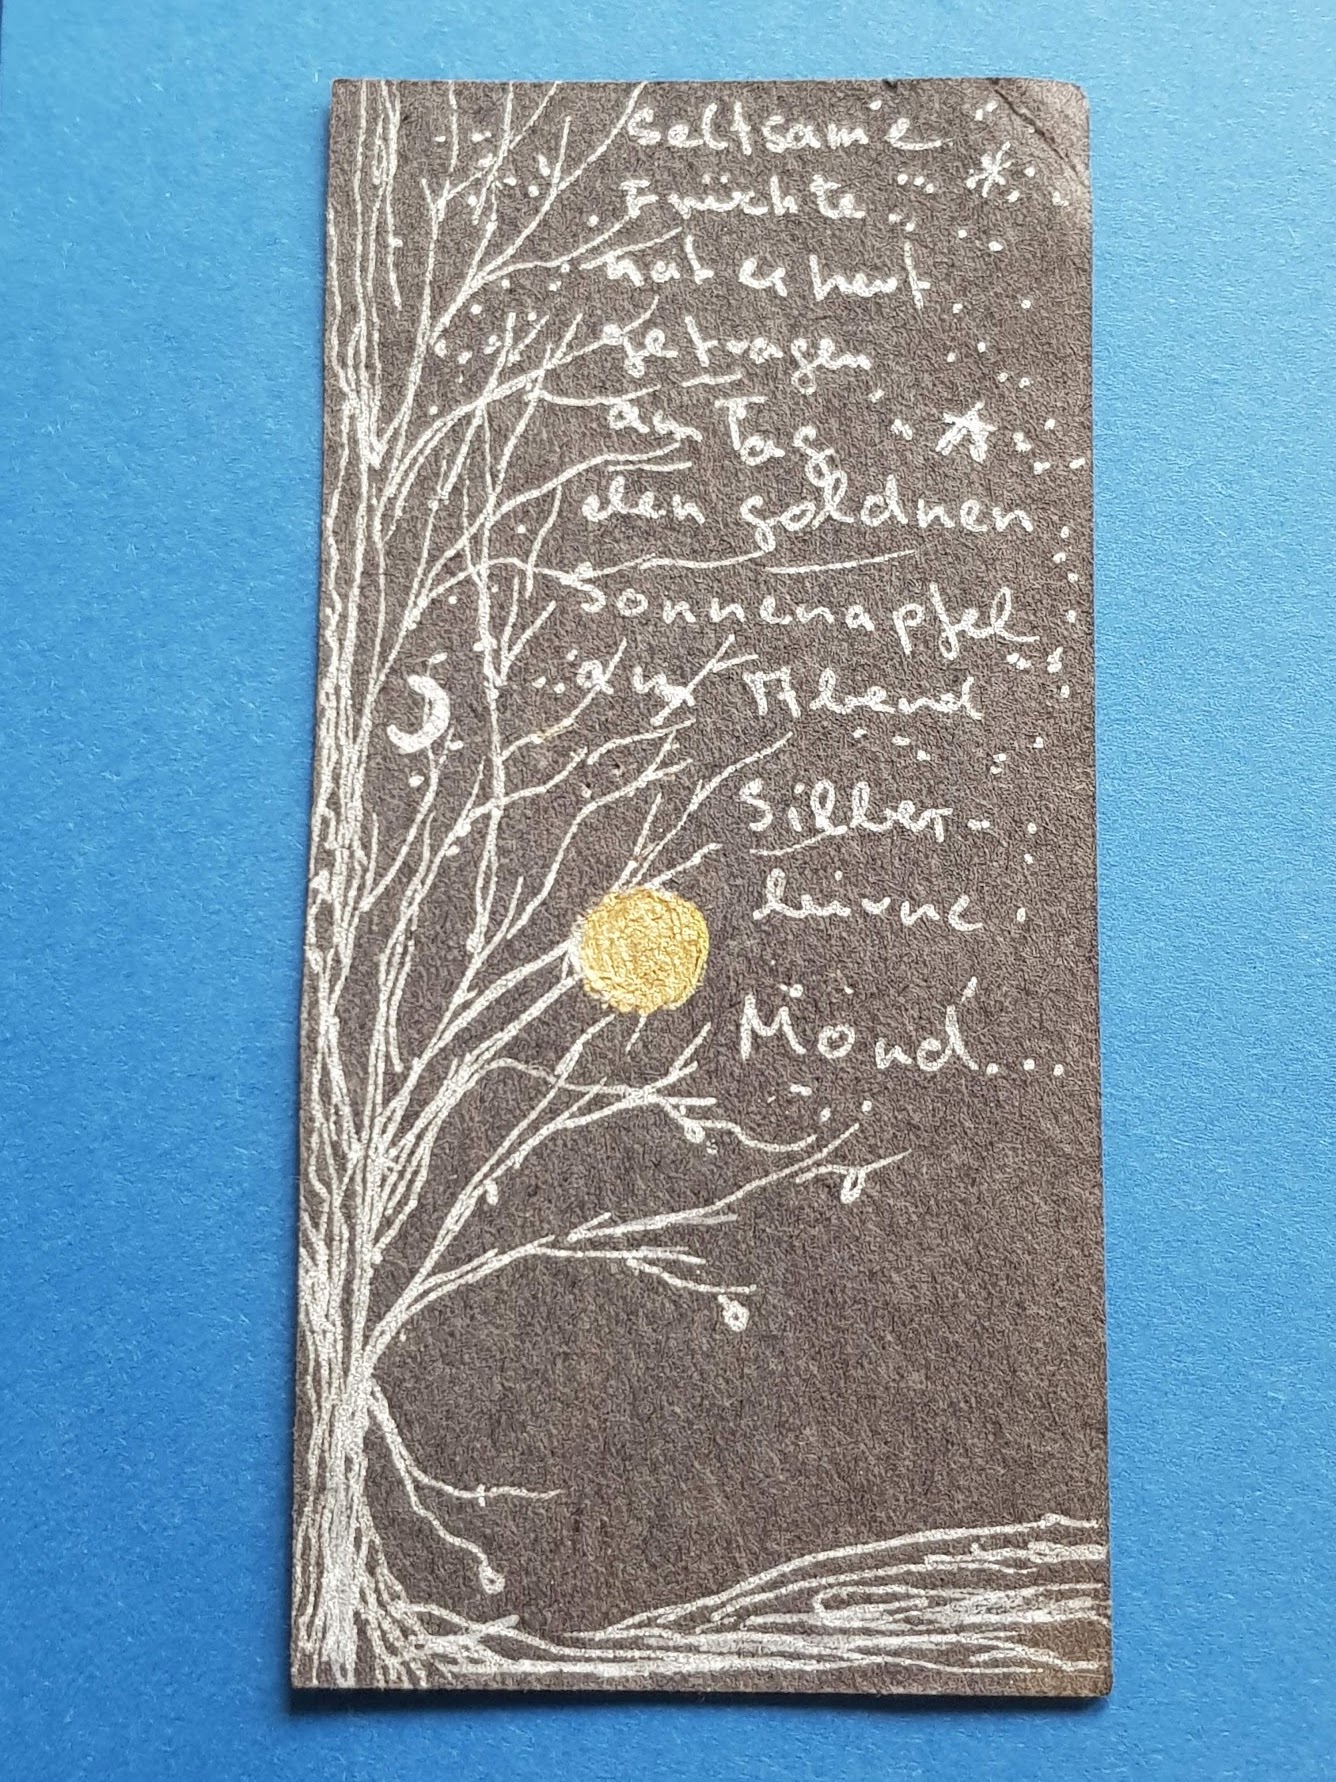 Seltsame
Früchte
hat er heut
getragen
am Tag
den goldnen
Sonnenapfel
am Abend
Silber-
birne
Mond...